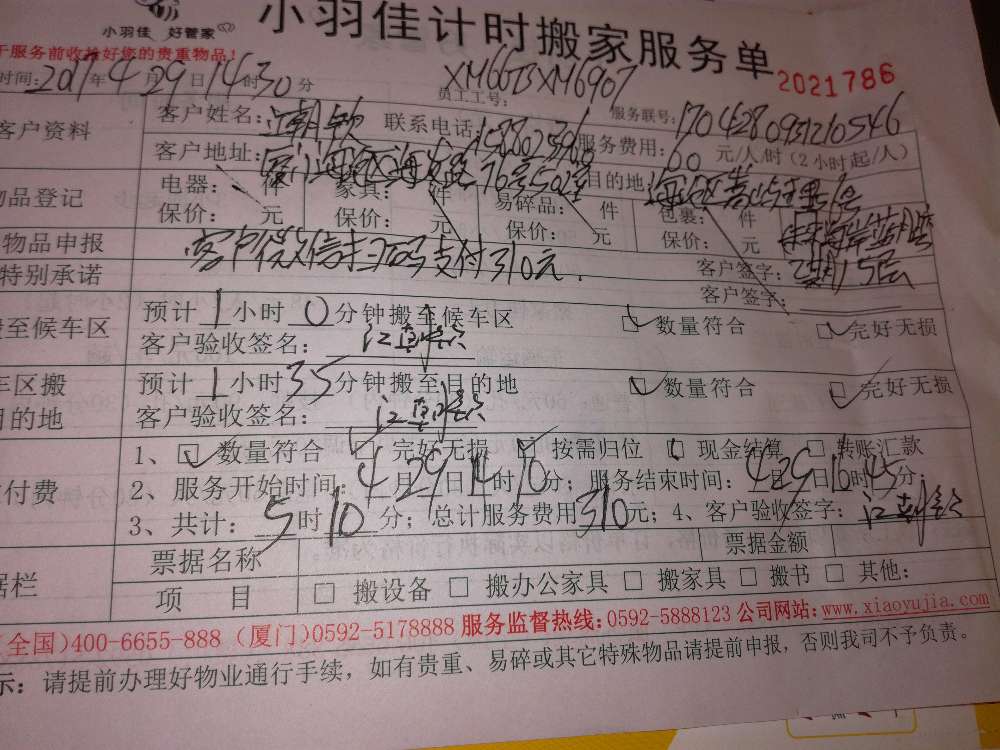 小羽佳 好管家
小羽佳计时搬家服务单
于服务前收拾好您的贵重物品!
2021786
时间:2017年4月29日14时30分
员工工号: XM667BXM6907
服务联号:1704280931210546
客户资料
客户姓名:江朝钦 联系电话: 服务费用:60元/人/时(2小时起/人)
客户地址: 76号502室 目的地:
物品登记
电器: 件 家具: 件 易碎品: 件 包裹: 件
保价: 元 保价: 元 保价: 元 保价: 元
物品申报 客户微信扫码支付310元. 客户签字:
特别承诺 客户签字:
至候车区
预计1小时0分钟搬至候车区 ☑数量符合 ☑完好无损
客户验收签名:
车区搬
目的地
预计1小时35分钟搬至目的地 ☑数量符合 ☑完好无损
客户验收签名:
付费
1、☑数量符合 ☑完好无损 ☑按需归位 □现金结算 □转账汇款
2、服务开始时间:4月29日14时10分;服务结束时间:4月29日16时45分
3、共计:5时10分;总计服务费用310元;4、客户验收签字:
据栏
票据名称 票据金额
项 目 □搬设备 □搬办公家具 □搬家具 □搬书 □其他:
(全国)400-6655-888 (厦门)0592-5178888 服务监督热线:0592-5888123 公司网站:www.xiaoyujia.com
示:请提前办理好物业通行手续,如有贵重、易碎或其它特殊物品请提前申报,否则我司不予负责。